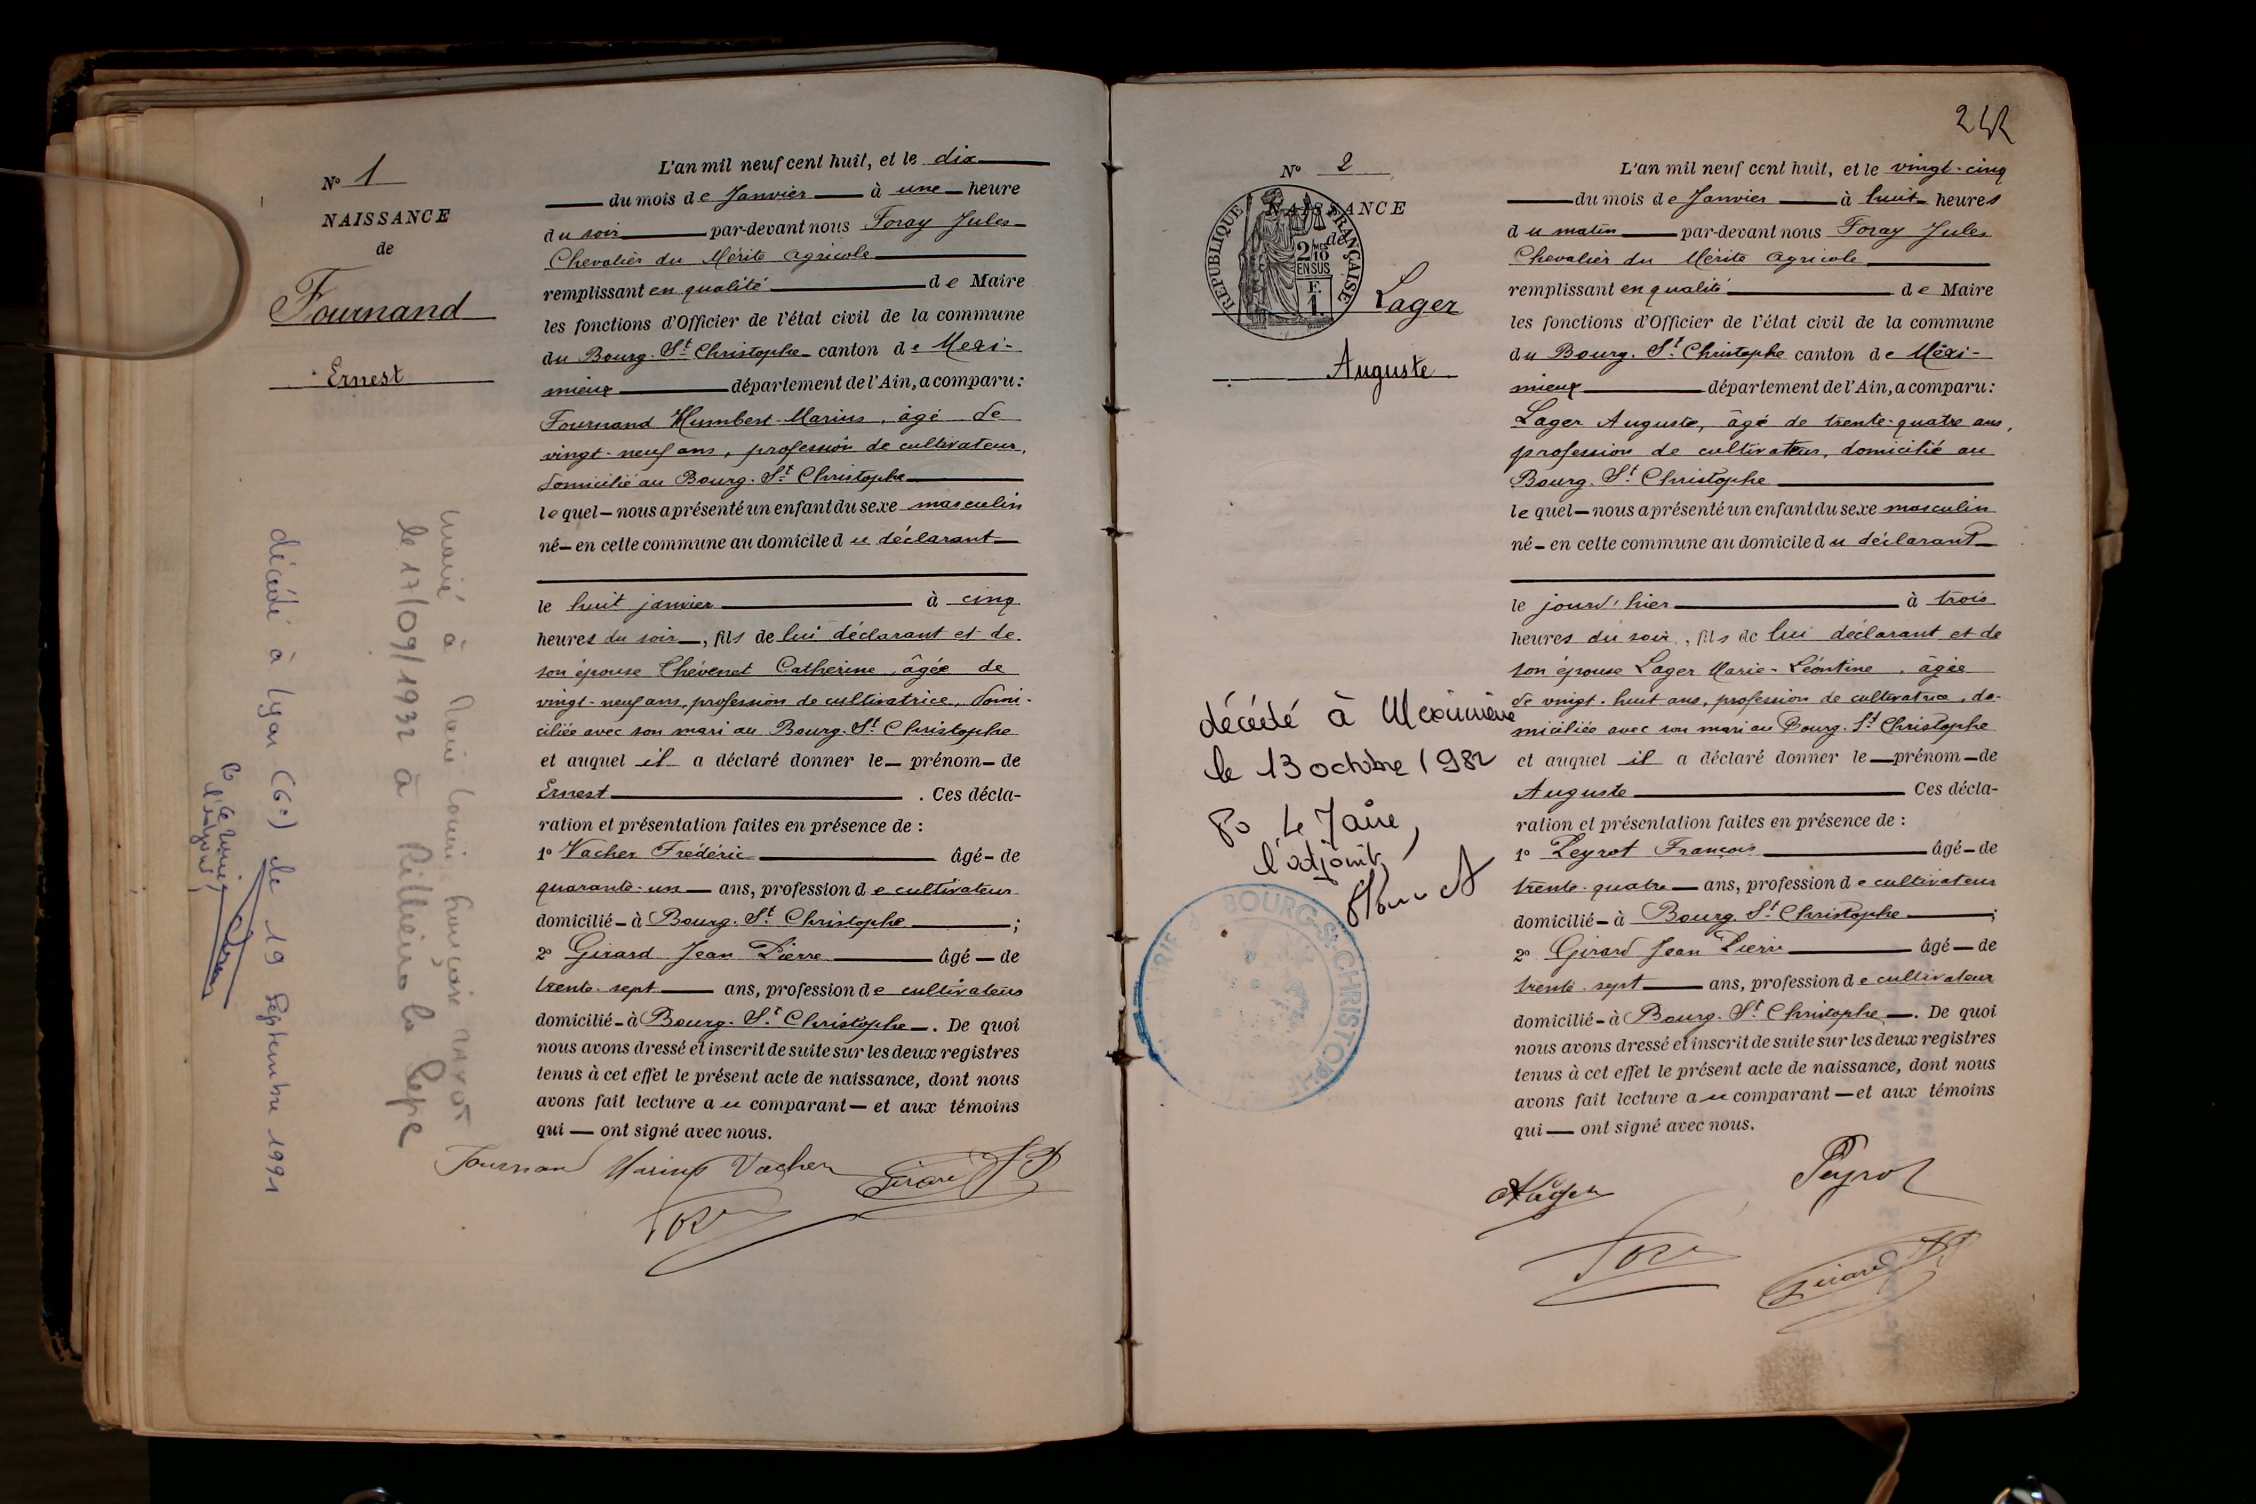 N° 1
NAISSANCE
de
Fournand
Ernest
L'an mil neuf cent huit, et le dix
du mois de Janvier à une heure
du soir par-devant nous Foray Jules
Chevalier du Mérite agricole
remplissant en qualité de Maire
les fonctions d'Officier de l'état civil de la commune
du Bourg-St Christophe canton de Mexi-
mieux département de l'Ain, a comparu :
Fournand Humbert-Marius, âgé de
vingt-neuf ans, profession de cultivateur,
domicilié au Bourg-St Christophe
lequel nous a présenté un enfant du sexe masculin
né en cette commune au domicile du déclarant
le huit janvier à cinq
heures du soir, fils de lui déclarant et de
son épouse Thévenet Catherine, âgée de
vingt-neuf ans, profession de cultivatrice, domi-
ciliée avec son mari au Bourg-St Christophe
et auquel il a déclaré donner le prénom de
Ernest . Ces décla-
ration et présentation faites en présence de :
1° Vacher Frédéric âgé de
quarante-un ans, profession de cultivateur
domicilié à Bourg-St Christophe ;
2° Girard Jean Pierre âgé de
trente-sept ans, profession de cultivateur
domicilié à Bourg-St Christophe . De quoi
nous avons dressé et inscrit de suite sur les deux registres
tenus à cet effet le présent acte de naissance, dont nous
avons fait lecture au comparant et aux témoins
qui ont signé avec nous.
Fournand Marius Vacher Girard JP
marié à Marie Louise Françoise
le 17/09/1932 à Rillieux la Pape
décédé à Lyon (6e) le 19 septembre 1991
Po le maire,
l'adjoint,
242
N° 2
NAISSANCE
de
RÉPUBLIQUE FRANÇAISE
2/10
EN SUS
F.
1.
Lager
Auguste
L'an mil neuf cent huit, et le vingt-cinq
du mois de Janvier à huit heures
du matin par-devant nous Foray Jules
Chevalier du Mérite agricole
remplissant en qualité de Maire
les fonctions d'Officier de l'état civil de la commune
du Bourg-St Christophe canton de Méxi-
mieux département de l'Ain, a comparu :
Lager Auguste, âgé de trente-quatre ans,
profession de cultivateur, domicilié au
Bourg-St Christophe
lequel nous a présenté un enfant du sexe masculin
né en cette commune au domicile du déclarant
le jourd'hier à trois
heures du soir, fils de lui déclarant et de
son épouse Lager Marie-Léontine, âgée
de vingt-huit ans, profession de cultivatrice, do-
miciliée avec son mari au Bourg-St Christophe
et auquel il a déclaré donner le prénom de
Auguste Ces décla-
ration et présentation faites en présence de :
1° Peyrot François âgé de
trente-quatre ans, profession de cultivateur
domicilié à Bourg-St Christophe ;
2° Girard Jean Pierre âgé de
trente-sept ans, profession de cultivateur
domicilié à Bourg-St Christophe . De quoi
nous avons dressé et inscrit de suite sur les deux registres
tenus à cet effet le présent acte de naissance, dont nous
avons fait lecture au comparant et aux témoins
qui ont signé avec nous.
décédé à Meximieux
le 13 octobre 1982
Po Le Maire,
l'adjoint,
BOURG-St-CHRISTOPHE
ALager Peyrot
Girard JP